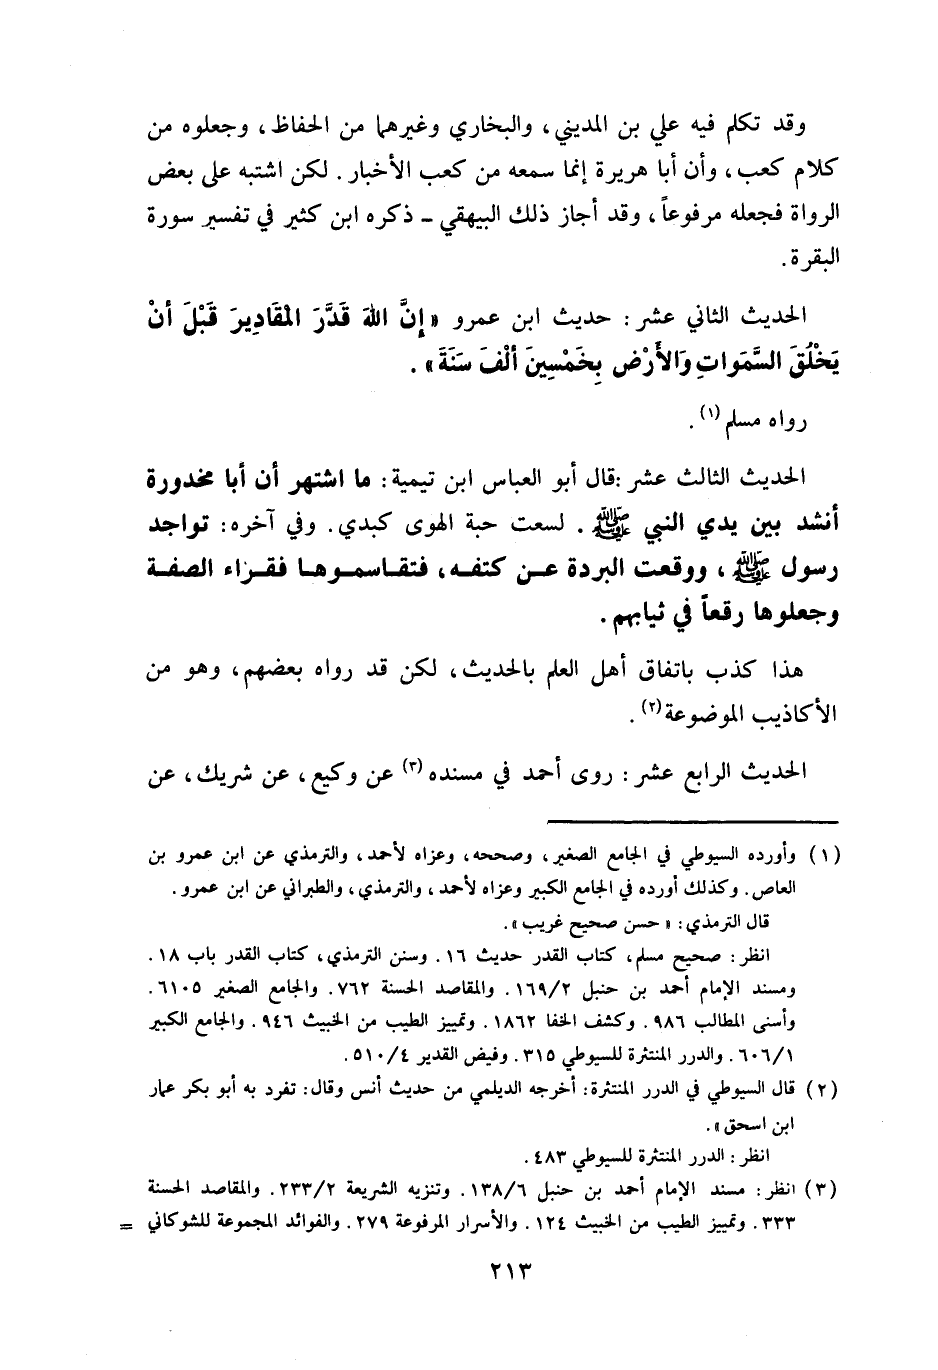 وقد تكلم فيه علي بن المديني، والبخاري وغيرهما من الحفاظ، وجعلوه من
كلام كعب، وأن أبا هريرة إنما سمعه من كعب الأخبار. لكن اشتبه على بعض
الرواة فجعله مرفوعاً، وقد أجاز ذلك البيهقي - ذكره ابن كثير في تفسير سورة
البقرة.
الحديث الثاني عشر: حديث ابن عمرو «إِنَّ اللهَ قَدَّرَ المْقَادِيرَ قَبْلَ أنْ
يَخْلُقَ السَّمَواتِ وَالأَرْضِ بِخَمْسِينَ ألْفَ سَنَةَ».
رواه مسلم (١).
الحديث الثالث عشر: قال أبو العباس ابن تيمية: ما اشتهر أن أبا مخدورة
أنشد بين يدي النبي ﷺ. لسعت حبة الهوى كبدي. وفي آخره: تواجد
رسول ﷺ، ووقعت البردة عن كتفه، فتقاسموها فقراء الصفة
وجعلوها رقعاً في ثيابهم.
هذا كذب باتفاق أهل العلم بالحديث، لكن قد رواه بعضهم، وهو من
الأكاذيب الموضوعة (٢).
الحديث الرابع عشر: روى أحمد في مسنده (٣) عن وكيع، عن شريك، عن
(١) وأورده السيوطي في الجامع الصغير، وصححه، وعزاه لأحمد، والترمذي عن ابن عمرو بن
العاص. وكذلك أورده في الجامع الكبير وعزاه لأحمد، والترمذي، والطبراني عن ابن عمرو.
قال الترمذي: «حسن صحيح غريب».
انظر: صحيح مسلم، كتاب القدر حديث ١٦. وسنن الترمذي، كتاب القدر باب ١٨.
ومسند الإمام أحمد بن حنبل ١٦٩/٢. والمقاصد الحسنة ٧٦٢. والجامع الصغير ٦١٠٥.
وأسنى المطالب ٩٨٦. وكشف الخفا ١٨٦٢. وتمييز الطيب من الخبيث ٩٤٦. والجامع الكبير
٦٠٦/١. والدرر المنتثرة للسيوطي ٣١٥. وفيض القدير ٥١٠/٤.
(٢) قال السيوطي في الدرر المنتثرة: أخرجه الديلمي من حديث أنس وقال: تفرد به أبو بكر عمار
ابن اسحق».
انظر: الدرر المنتثرة للسيوطي ٤٨٣.
(٣) انظر: مسند الإمام أحمد بن حنبل ١٣٨/٦. وتنزيه الشريعة ٢٣٣/٢. والمقاصد الحسنة
٣٣٣. وتمييز الطيب من الخبيث ١٢٤. والأسرار المرفوعة ٢٧٩. والفوائد المجموعة للشوكاني =
٢١٣